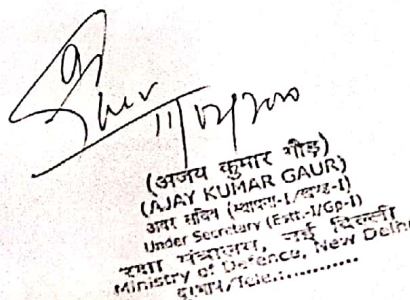 (अजय कुमार गौड़)
(AJAY KUMAR GAUR)
अवर सचिव (स्थापना-I/ग्रुप-I)
Under Secretary (Estt.-I/Gp-I)
रक्षा मंत्रालय, नई दिल्ली
Ministry of Defence, New Delhi
दूरभाष/Tele.:............